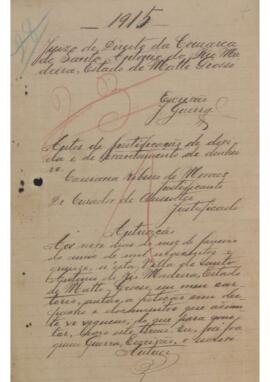 1915
Juizo de Direito da Comarca
de Santo Antonio do Rio Ma
deira, Estado de Matto Grosso
Escrivão
Guerra
Autos de justificação de divi
da e de levantamento de dinhei
ro.
de Moraes
Justificante
O Curador de Ausentes
Justificado
Autuação
Aos nove dias do mez de Janeiro
do anno de mil novecentos e
quinze, n'esta Villa de Santo
Antonio do Rio Madeira, Estado
de Matto Grosso, em meu car
torio, autuo a petição com des
pacho e documentos que adiante
se seguem; do que para cons
tar, faço este termo. Eu,
Guerra, Escrivão, o